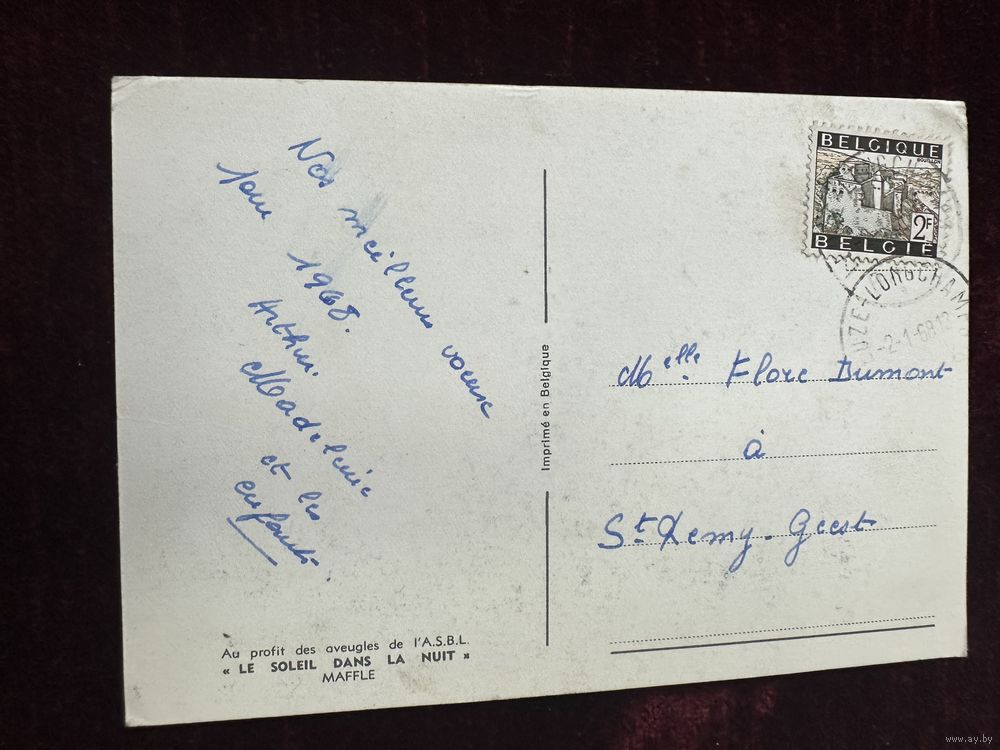 Nos meilleurs voeux
pour 1968.
Arthur.
Madeleine
et les
enfants.
Au profit des aveugles de l'A.S.B.L.
« LE SOLEIL DANS LA NUIT »
MAFFLE
Imprimé en Belgique
BELGIQUE
2F
BELGIË
LONGCHAMP
-2-1-68 12
Melle Flore Dumont
à
St. Remy. Geest
www.ay.by